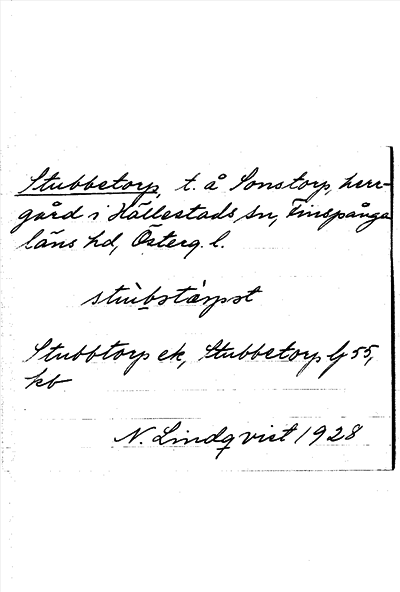 Stubbetorp, t. å Sonstorp, herr-
gård i Hällestads sn, Finspånga
läns hd, Österg. l.
stùbstàrpst
Stubbtorp ek, Stubbetorp lj 55,
kb
N. Lindqvist 1928